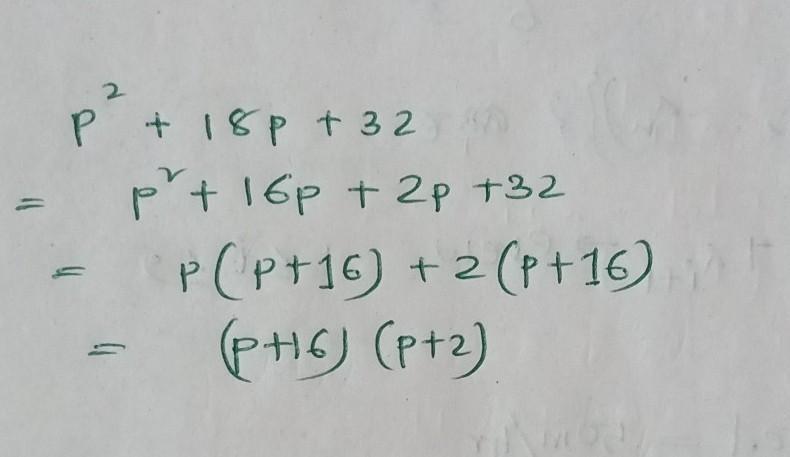 p² + 18p + 32
= p² + 16p + 2p + 32
= p(p+16) + 2(p+16)
= (p+16) (p+2)